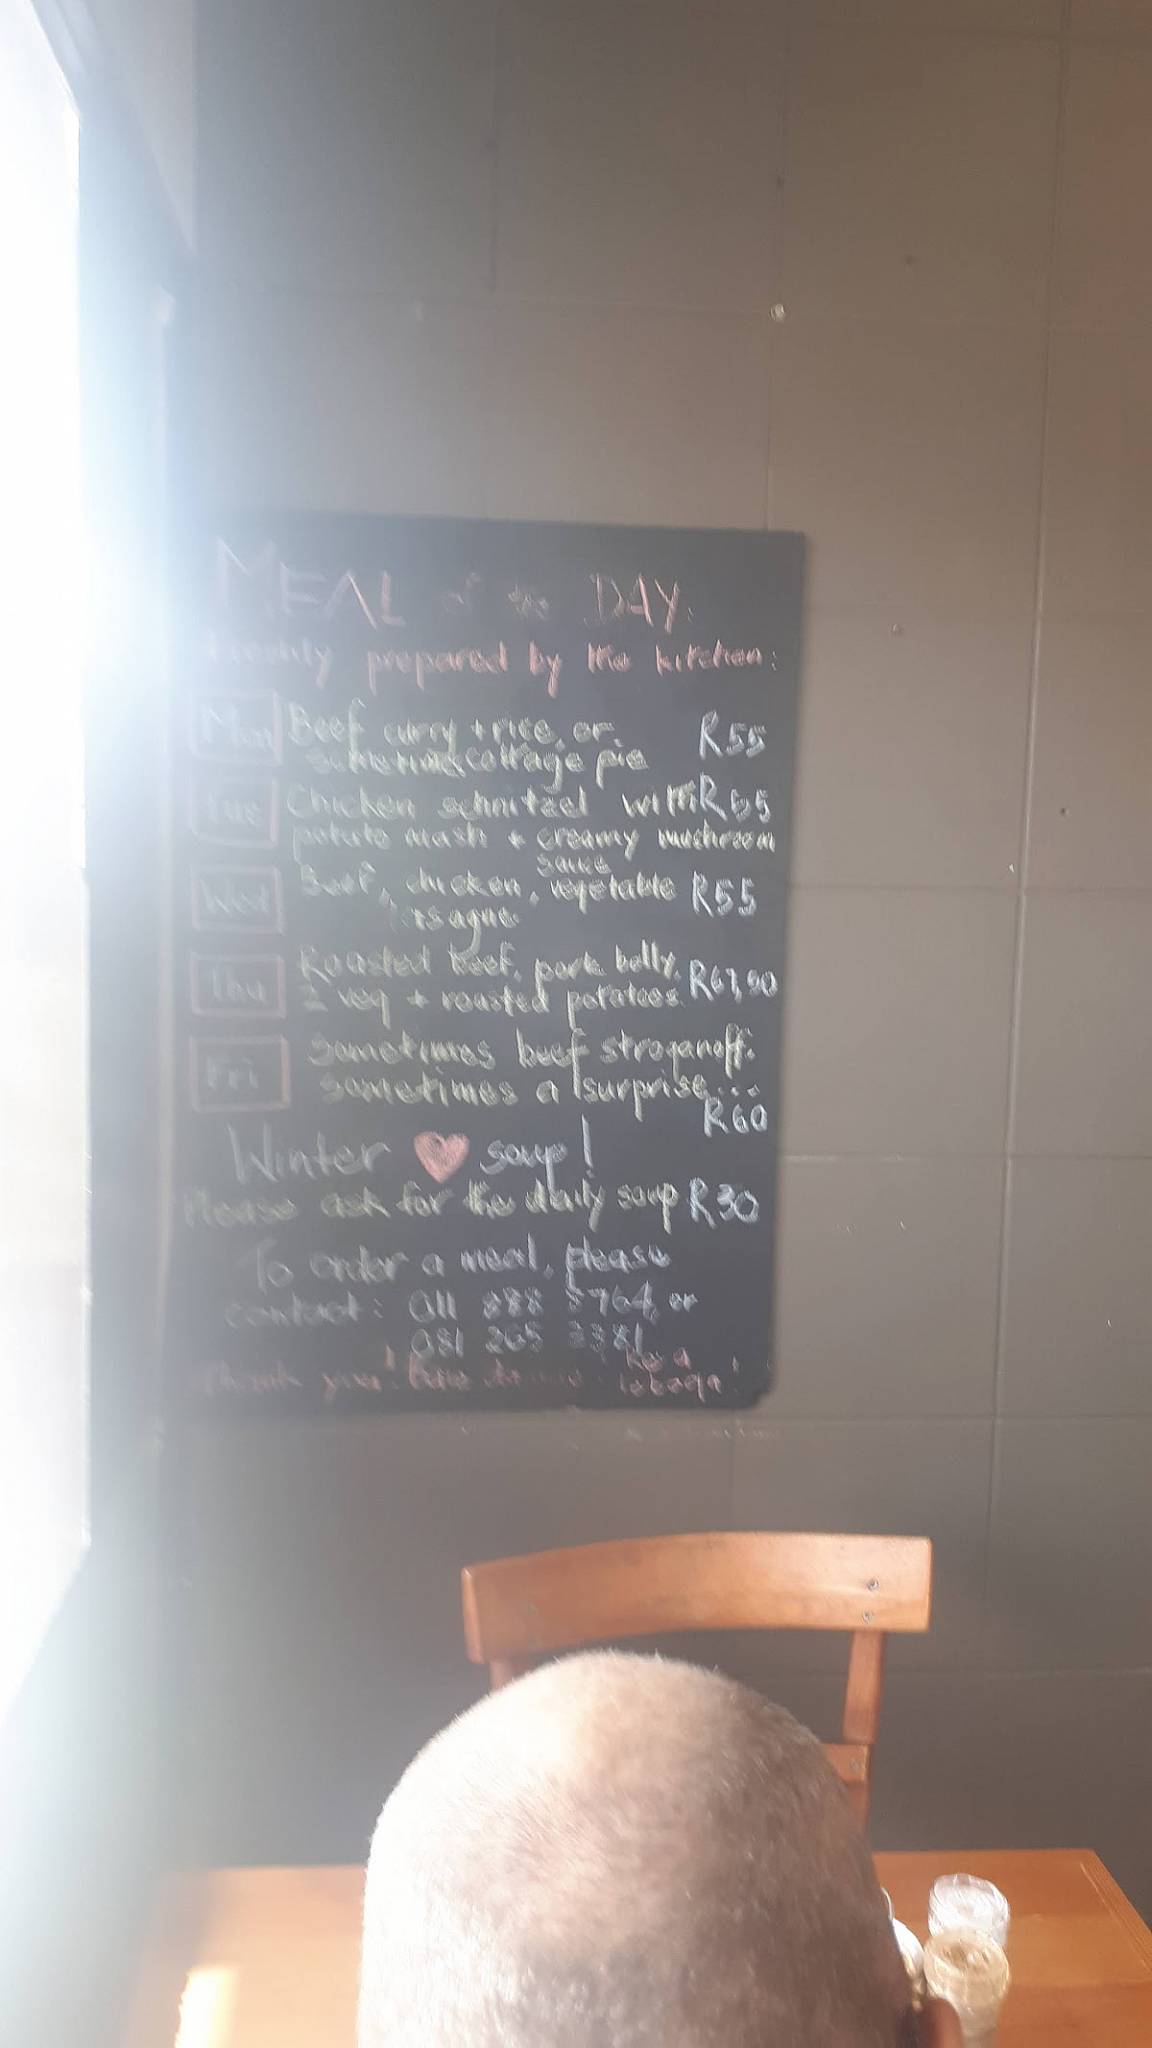 MEAL of the DAY.
prepared by the kitchen:
Mon Beef curry + rice, or R55
cottage pie
Tue Chicken schnitzel with R55
potato mash + creamy mushroom
sauce
Wed Beef, chicken, vegetable R55
lasagne
Thu Roasted beef, pork belly, R67,90
2 veg + roasted potatoes.
Fri Sometimes beef stroganoff.
sometimes a surprise...
R60
Winter ♥ soup!
Please ask for the daily soup R30
To order a meal, please
contact: 011 888 5764, or
081 265 3381
Thank you!